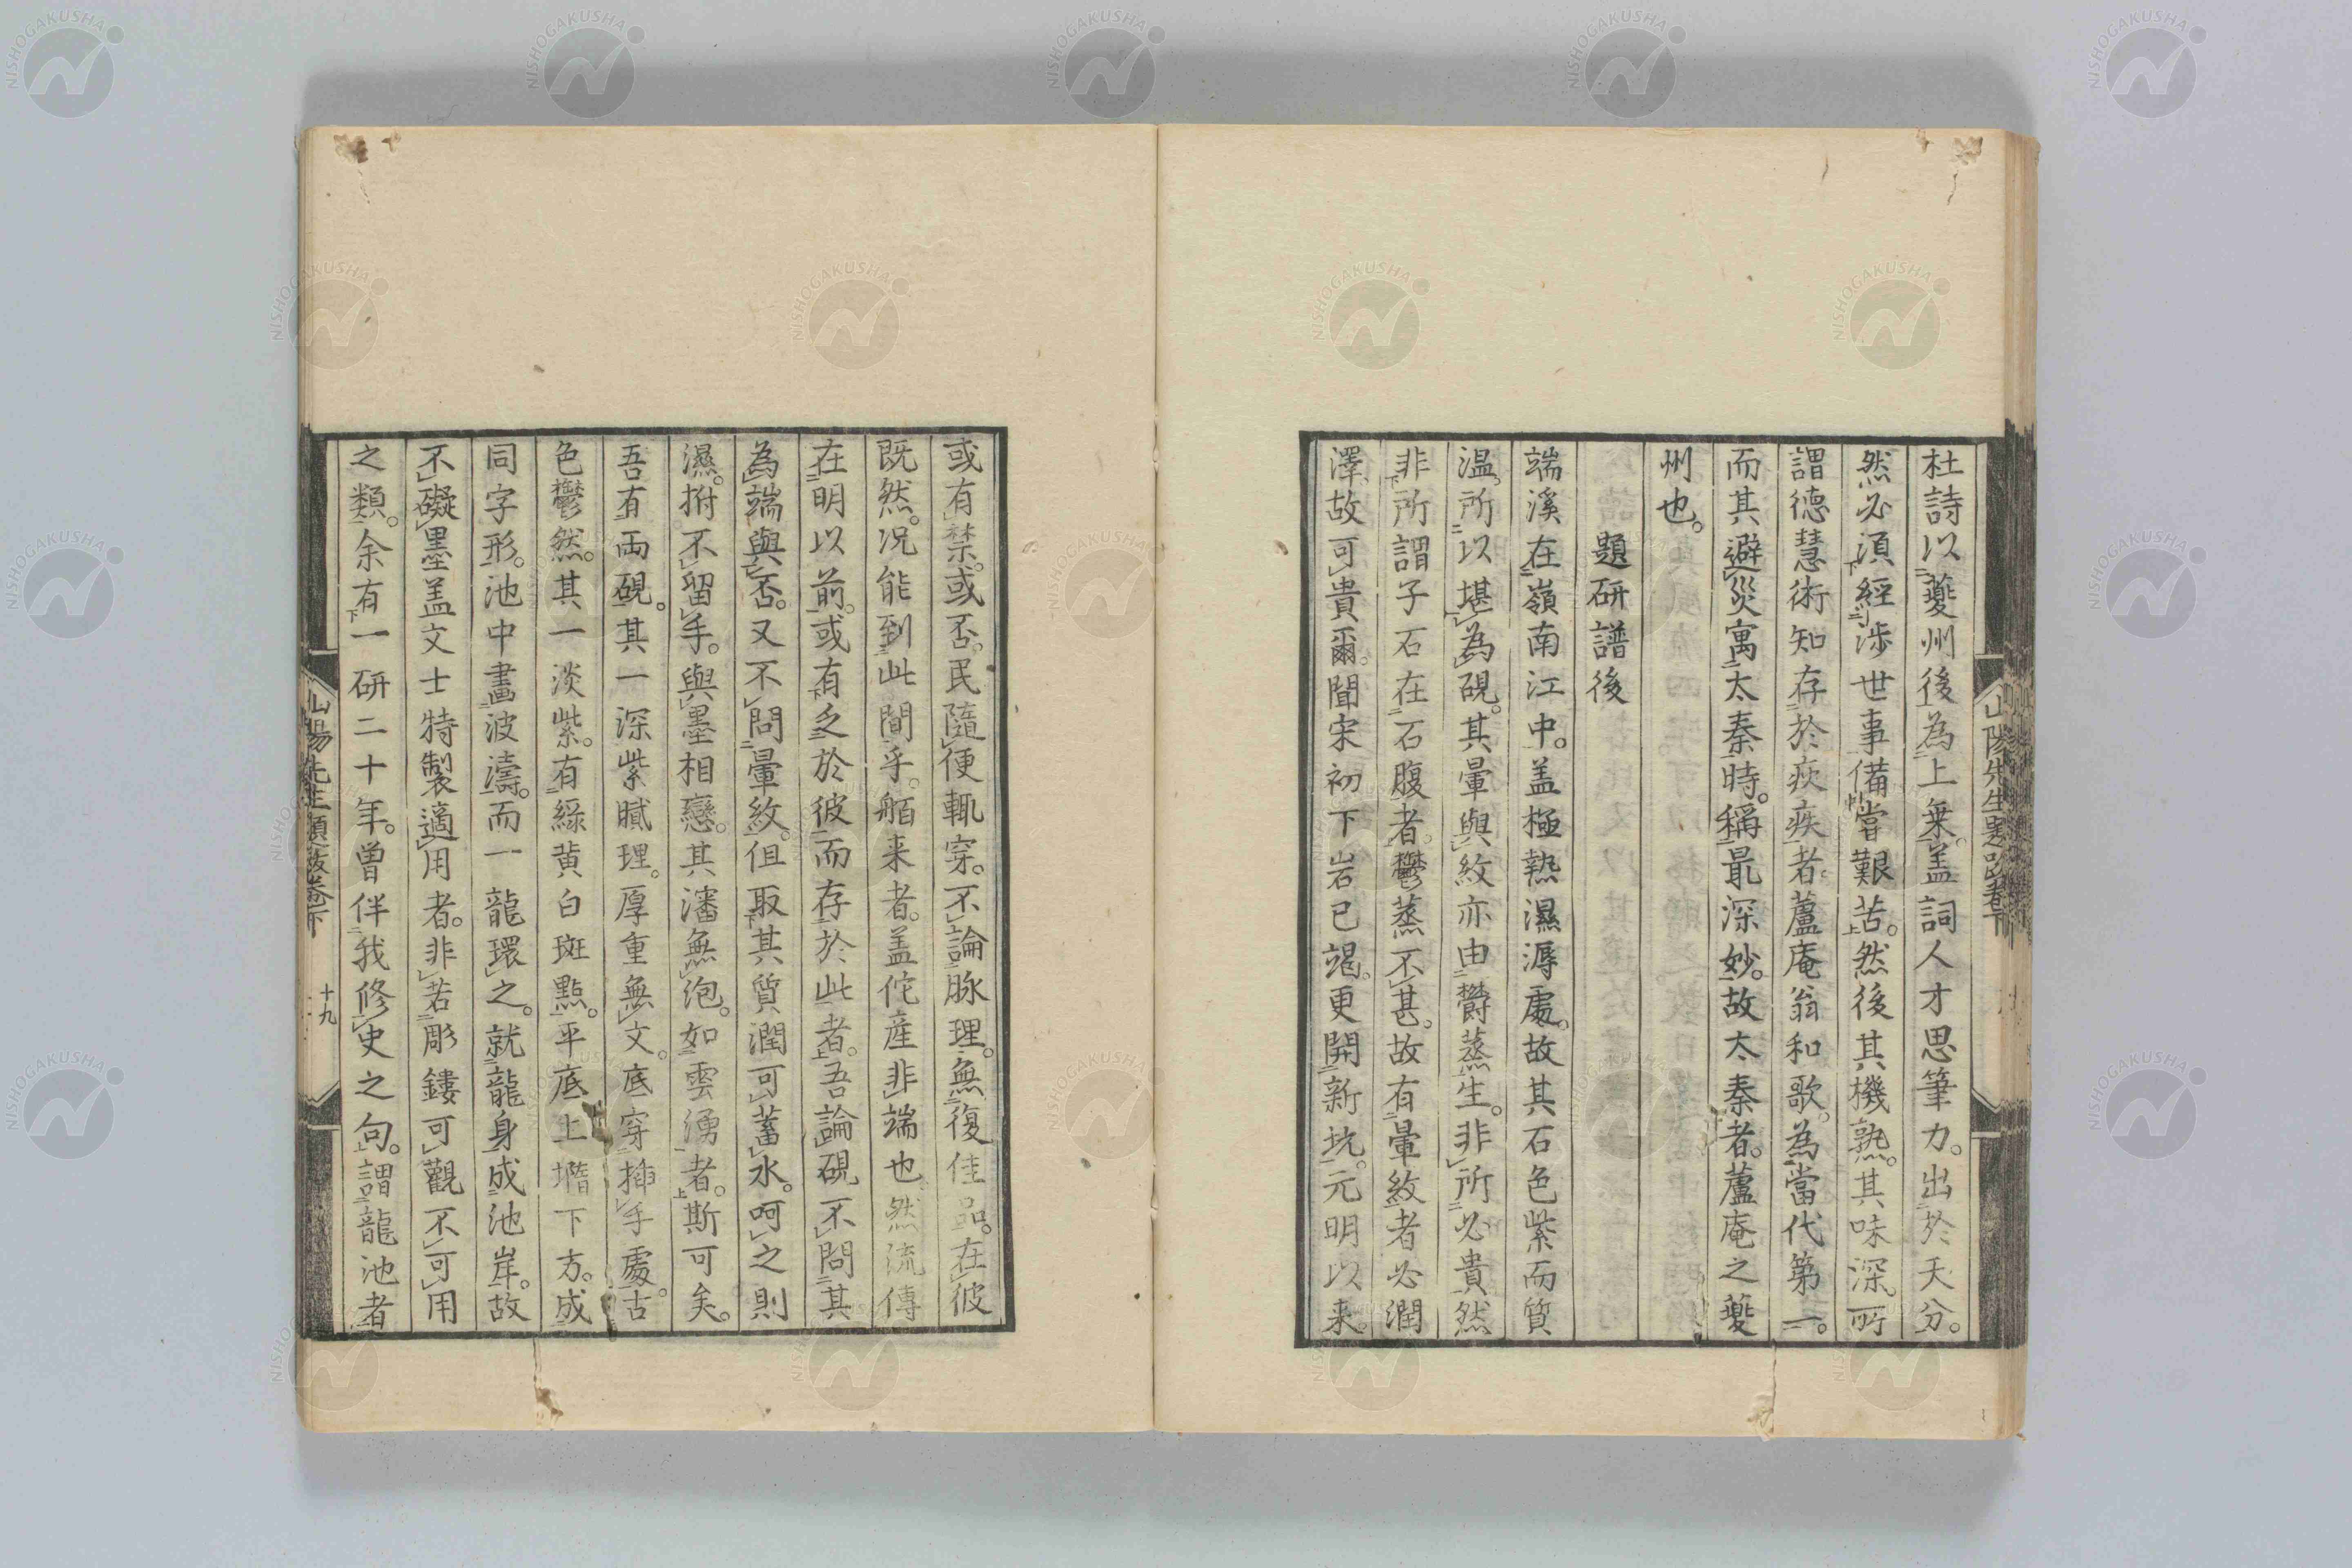 杜詩以夔州後為上乗。盖詞人才思筆力。出於天分。
然必須經渉世事備甞艱苦。然後其機熟。其味深。所
謂德慧術知存於疢疾者。蘆庵翁和歌。為當代第一。
而其避災寓太秦時。稱最深妙。故太秦者。蘆庵之夔
州也。
題研譜後
端溪在嶺南江中。盖極熱濕溽處。故其石色紫而質
温。所以堪為硯。其暈與紋亦由欝蒸生。非所必貴然
非所謂子石在石腹者。欝蒸不甚。故有暈紋者必潤
澤。故可貴爾。聞宋初下岩已竭。更開新坑。元明以来。
或有禁。或否。民隨便輒穿。不論脉理。無復佳品。在彼
既然。况能到此間乎。舶来者。盖佗産非端也。然流傳
在明以前。或有乏於彼而存於此者。吾論硯不問其
為端與否。又不問暈紋。但取其質潤可蓄水。呵之則
濕。拊不留手。與墨相戀。其瀋無泡。如雲湧者。斯可矣。
吾有両硯。其一深紫膩理。厚重無文。底穿挿手處。古
色欝然。其一淡紫。有緑黄白斑點。平底上墖下方。成
同字形。池中畫波濤。而一龍環之。就龍身成池岸。故
不礙墨盖文士特製適用者。非若彫鏤可觀不可用
之類。余有一研二十年。曾伴我修史之句。謂龍池者
山陽先生題跋卷下
十九